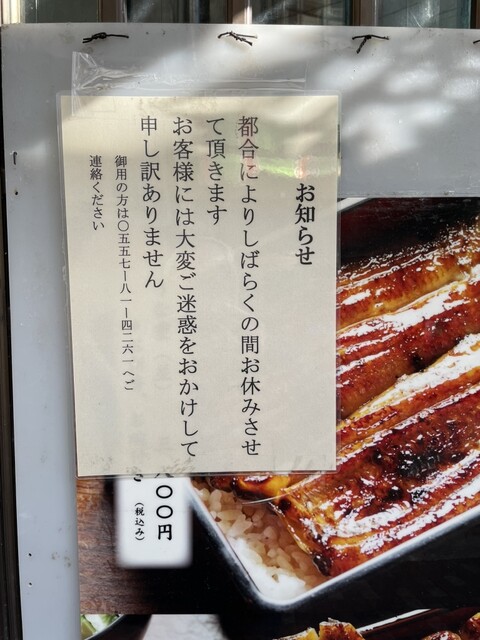 お知らせ
都合によりしばらくの間お休みさせ
て頂きます
お客様には大変ご迷惑をおかけして
申し訳ありません
御用の方は〇五五七ー八一ー四二六一へご
連絡ください
００円
(税込み)